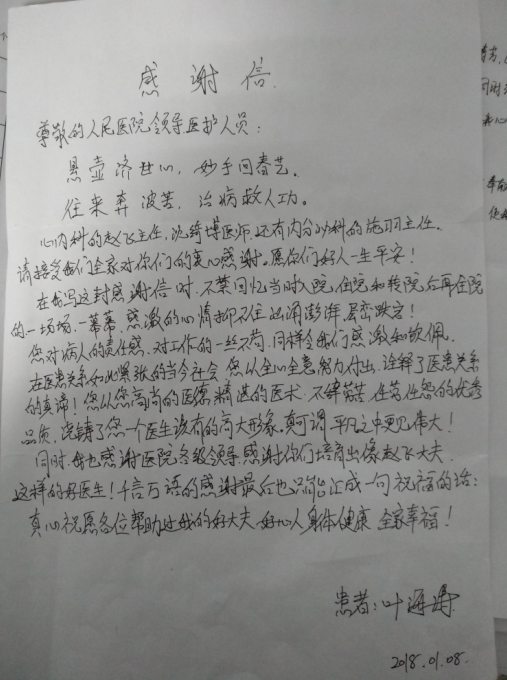 感谢信
尊敬的人民医院领导医护人员:
悬壶济世心,妙手回春艺。
往来奔波苦,治病救人功。
心内科的赵飞主任,沈绮博医师,还有内分泌科的施羽主任。
请接受我们全家对你们的衷心感谢。愿你们好人一生平安!
在我写这封感谢信时,不禁回忆当时入院,住院和转院后再住院
的一场场,一幕幕,感激的心情抑不住
您对病人的责任感,对工作的一丝不苟,同样令我们感激和钦佩。
在医患关系如此紧张的当今社会,您以全心全意努力付出,诠释了医患关系
的真谛!您以您高尚的医德,精湛的医术,不辞劳苦,任劳任怨的优秀
品质,浇铸了您一个医生该有的高大形象。真可谓平凡之中更见伟大!
同时,我也感谢医院各级领导,感谢你们培育出像赵飞大夫
这样的好医生!千言万语的感谢最后也只能汇成一句祝福的话:
真心祝愿各位帮助过我的好大夫、好心人身体健康 全家幸福!
患者:叶海涛
2018.01.08.